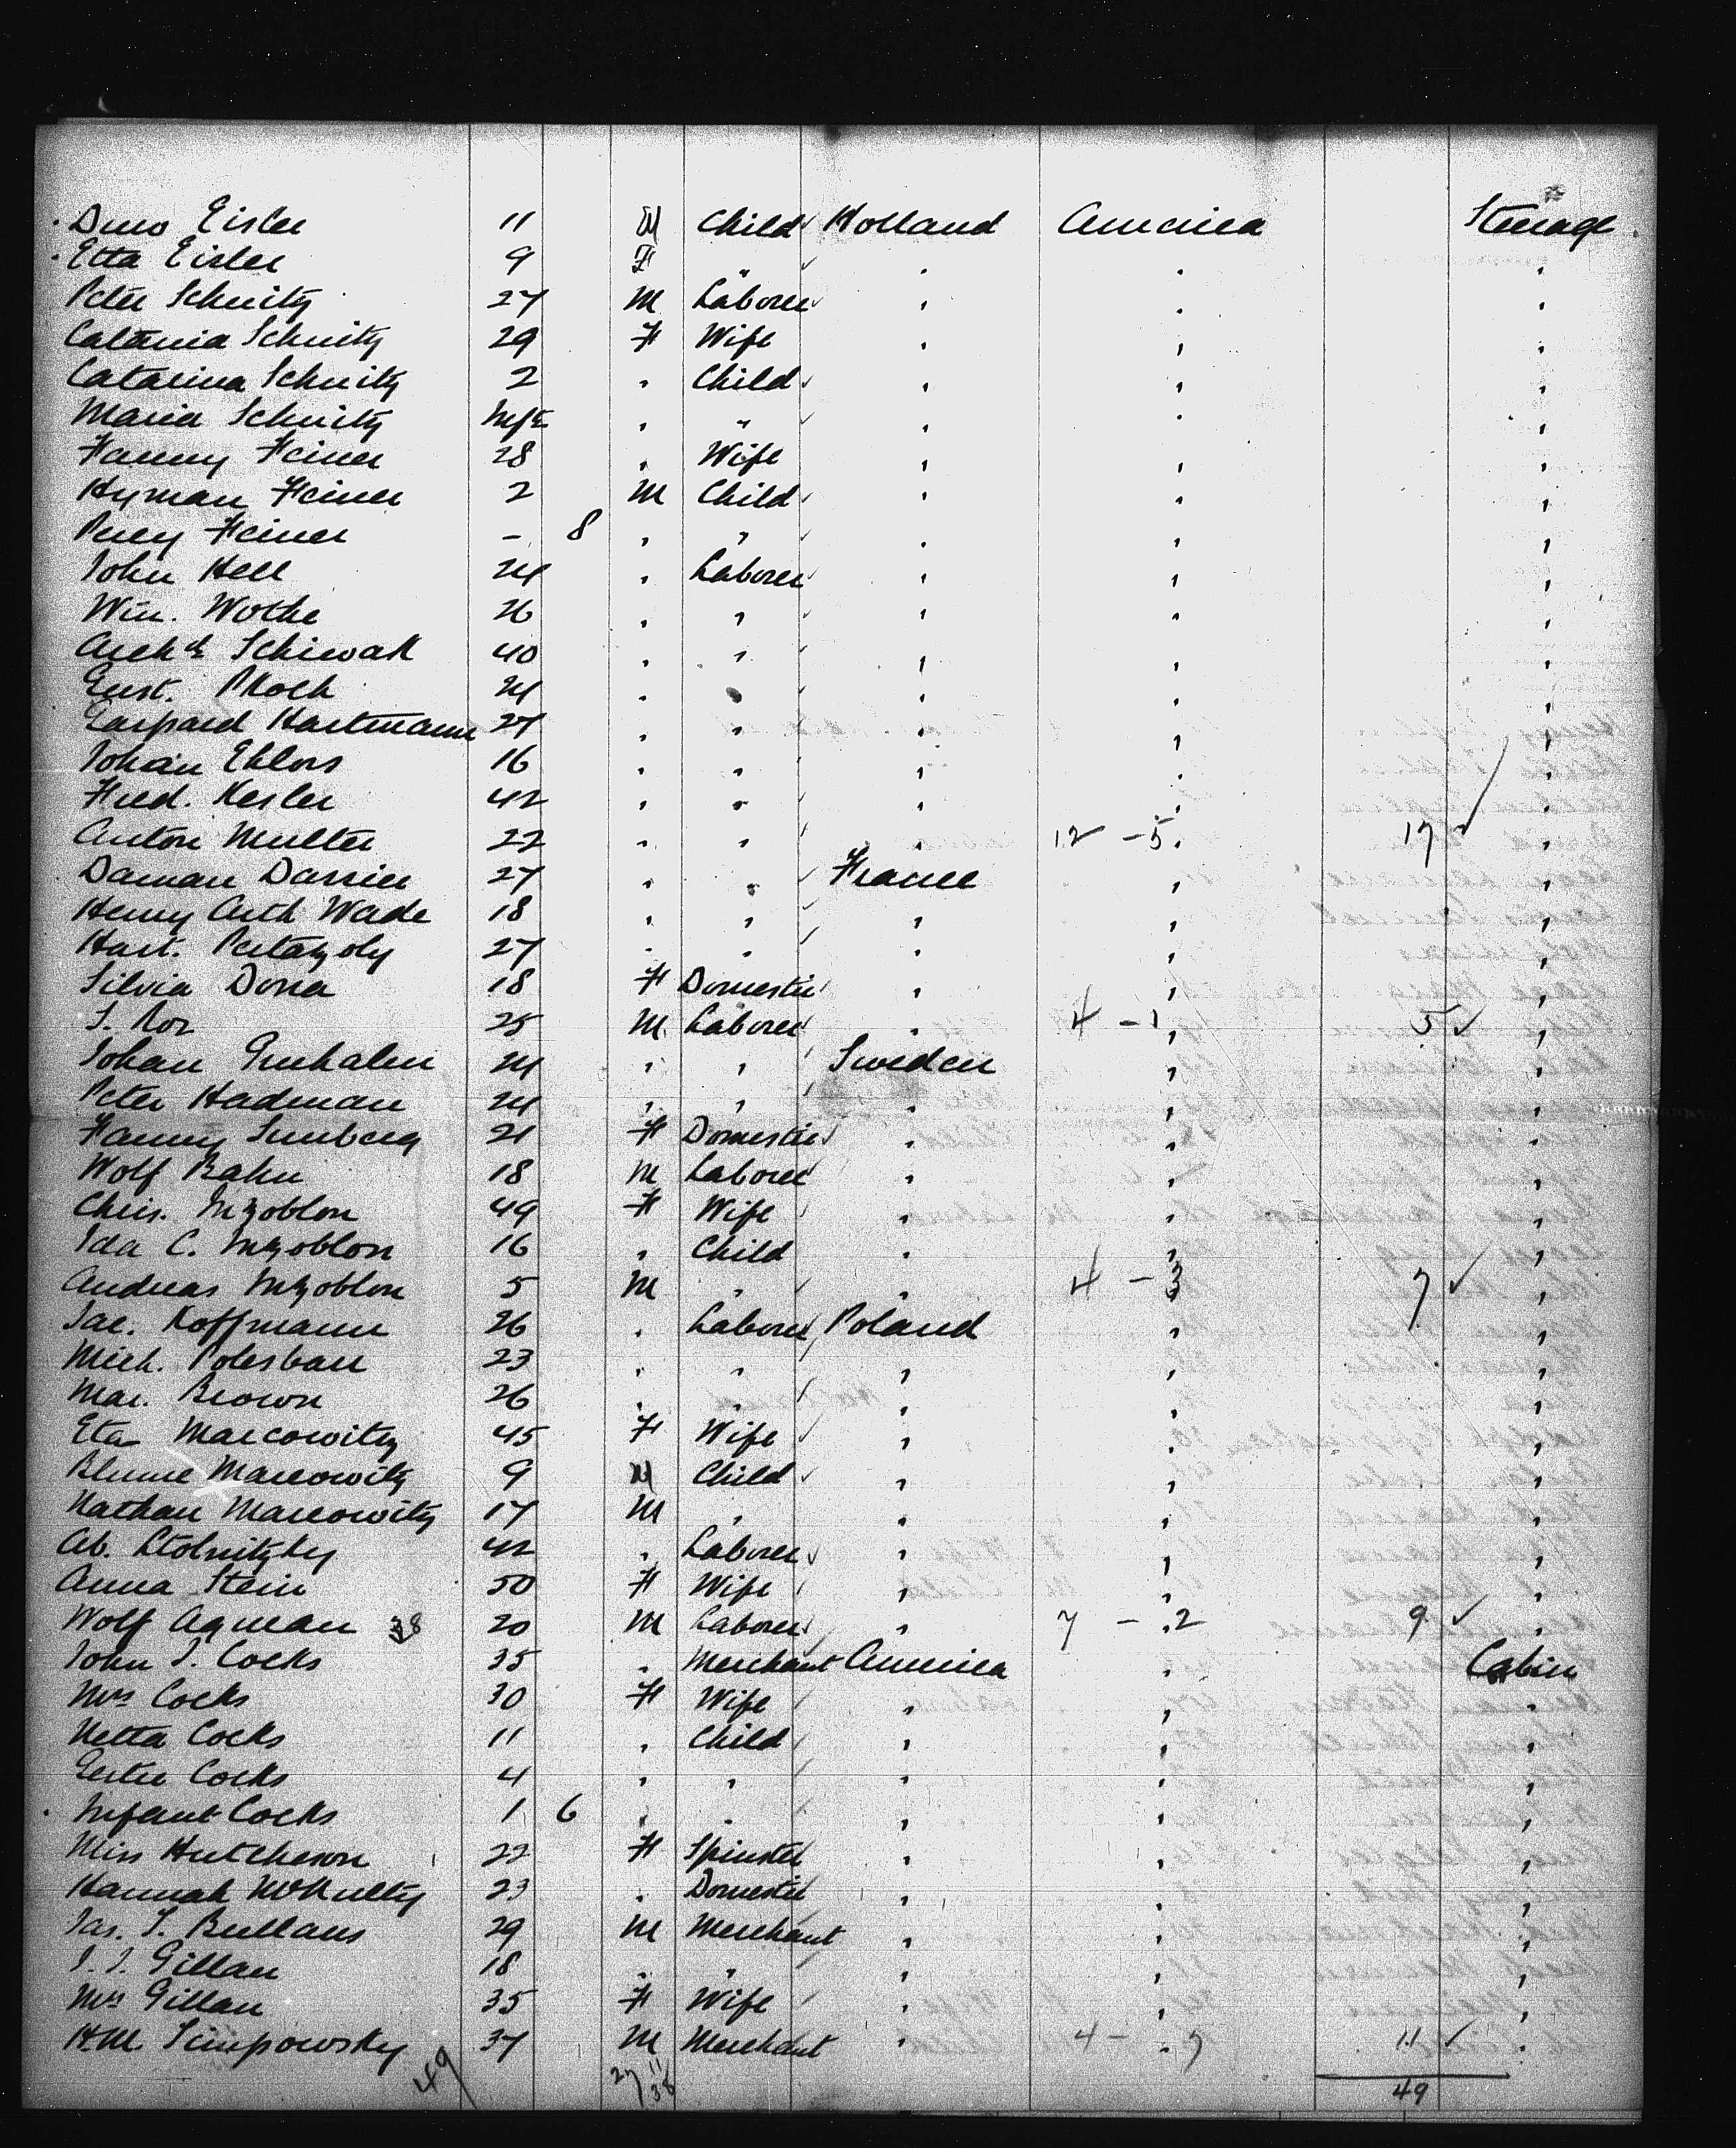 Duvo Eisler 11 M Child Holland America Steerage
Etta Eisler 9 F " " " "
Peter Schnitz 27 M Laborer " " "
Catarina Schnitz 29 F Wife " " "
Catarina Schnitz 2 " Child " " "
Maria Schnitz Inft " " " " "
Fanny Feiner 28 " Wife " " "
Hyman Feiner 2 M Child " " "
Percy Feiner - 8 " " " " "
John Hell 24 " Laborer " " "
Wm. Wothe 26 " " " " "
Archd Schiwak 40 " " " " "
Gust. Ploch 24 " " " " "
Gaspard Hartmann 27 " " " " "
Johan Ehlors 16 " " " " "
Fred. Kesler 42 " " " " "
Anton Multer 22 " " " 12 - 5 " 17 "
Daman Darrier 27 " " France " "
Henry Arth Wade 18 " " " " "
Hart. Pertazoly 27 " " " " "
Silvia Dona 18 F Domestic " " "
S. Ror 25 M Laborer " 4 - 1 " 5 "
Johan Gruhalen 24 " " Sweden " "
Peter Hadman 24 " " " " "
Fanny Sunberg 21 F Domestic " " "
Wolf Bahn 18 M Laborer " " "
Chris. Inzoblon 49 F Wife " " "
Ida C. Inzoblon 16 " Child " " "
Andreas Inzoblon 5 M " " 4 - 3 7 "
Jac. Koffmann 26 " Laborer Poland " "
Mich. Polesbau 23 " " " " "
Mar. Brown 26 " " " " "
Eta Marcowitz 45 F Wife " " "
Blume Marcowitz 9 M Child " " "
Nathan Marcowitz 17 M " " " "
Ab. Stolnitzky 42 " Laborer " " "
Anna Stein 50 F Wife " " "
Wolf Agman 38 20 M Laborer " 7 - 2 9 "
John J. Cocks 35 " Merchant America " Cabin
Mrs Cocks 30 F Wife " " "
Netta Cocks 11 " Child " " "
Gertie Cocks 4 " " " " "
Infant Cocks 1 6 " " " " "
Miss Hutcheson 22 F Spinster " " "
Hannah McNulty 23 " Domestic " " "
Jas. T. Bullans 29 M Merchant " " "
J. J. Gillan 18 " " " " "
Mrs Gillan 35 F Wife " " "
H.M. Simpowsky 37 M Merchant " 4 - 7 11 "
49 27 11 38 49